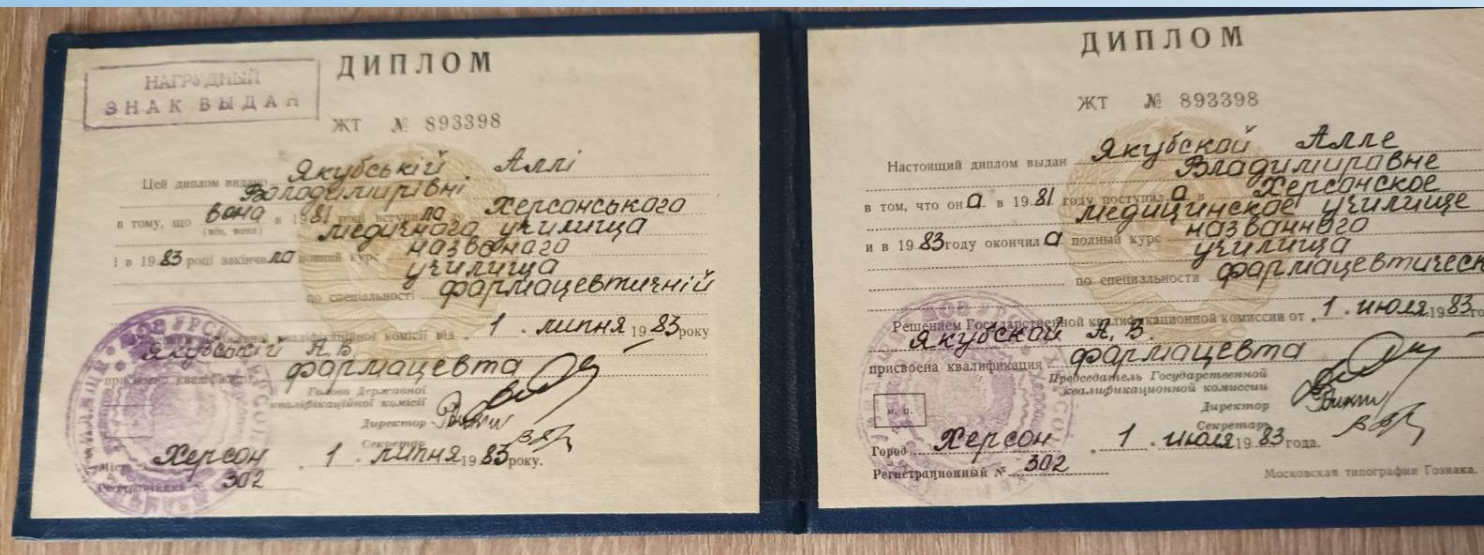 НАГРУДНЫЙ
ЗНАК ВЫДАН
ДИПЛОМ
ЖТ № 893398
Цей диплом видано Якубській Аллі
Володимирівні
в тому, що вона в 1981 році вступила до Херсонського
(він, вона)
медичного училища
і в 1983 році закінчила повний курс названого
училища
по спеціальності фармацевтичній
кваліфікаційної комісії від 1 . липня 1983 року
Якубській А. В.
присвоєна кваліфікація фармацевта
Голова Державної
кваліфікаційної комісії
Директор
Секретар
Місто Херсон 1 . липня 1983 року.
Регистраційний № 302
ДИПЛОМ
ЖТ № 893398
Настоящий диплом выдан Якубской Алле
Владимировне
в том, что она в 1981 году поступила в Херсонское
медицинское училище
и в 1983 году окончила полный курс названного
училища
по специальности фармацевтическ
Решением Государственной квалификационной комиссии от 1 . июля 1983 го
Якубской А. В.
присвоена квалификация фармацевта
Председатель Государственной
квалификационной комиссии
Директор
Секретарь
М. П.
Город Херсон 1 . июля 1983 года.
Регистрационный № 302
Московская типография Гознака.